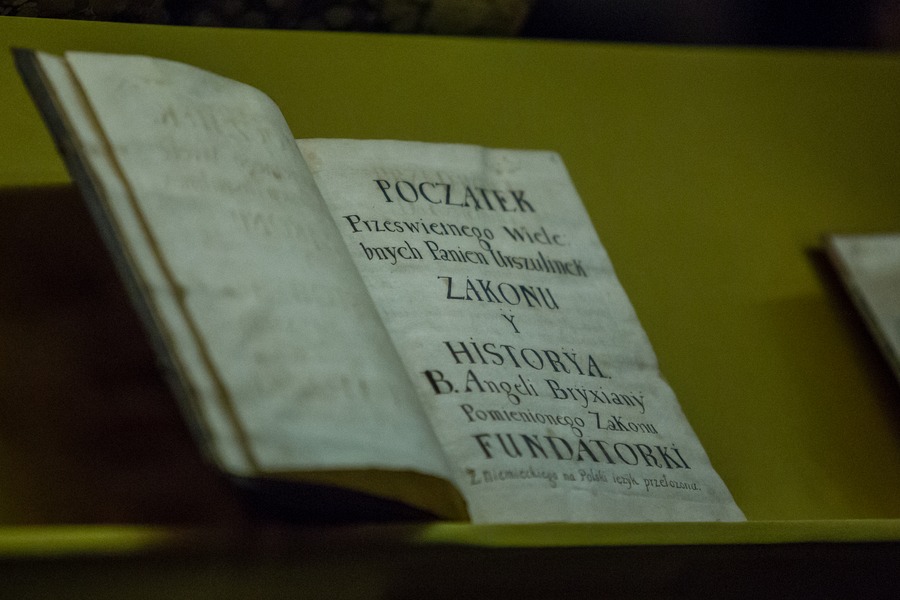 POCZATEK
Przeswietnego Wiele
bnych Panien Urszulinek
ZAKONU
Y
HISTORYA.
B. Angeli Bryxiany
Pomienionego Zakonu
FUNDATORKI
Z niemieckiego na Polski ięzÿk przełozona.